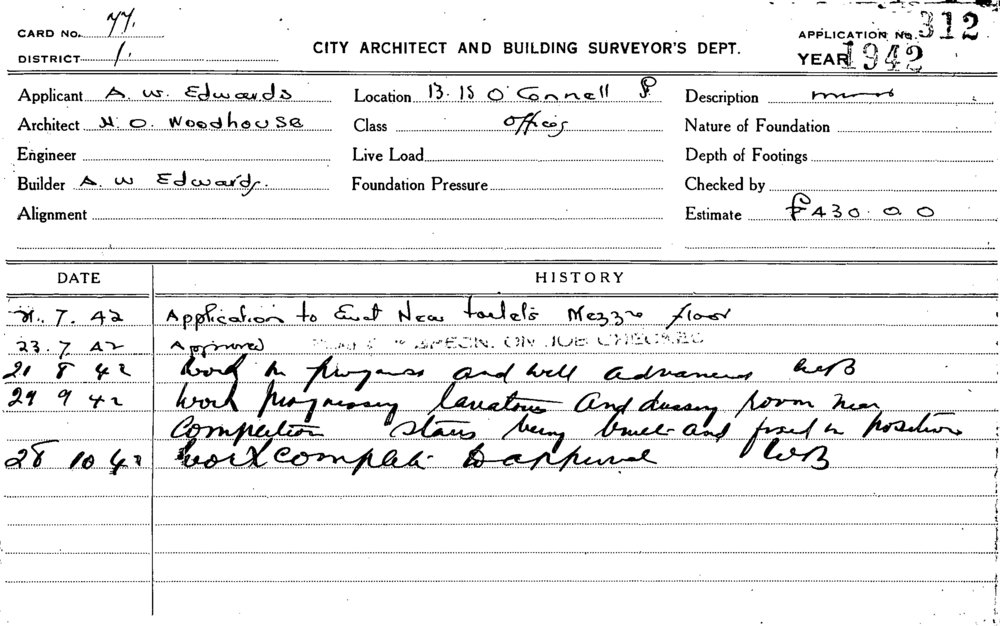 CARD No. 77.
APPLICATION No. 312
DISTRICT 1.
CITY ARCHITECT AND BUILDING SURVEYOR'S DEPT.
YEAR 1942
Applicant A. W. Edwards Location 13.15 O'Connell St. Description
Architect H. O. Woodhouse Class Offices Nature of Foundation
Engineer Live Load Depth of Footings
Builder A. W Edwards. Foundation Pressure Checked by
Alignment Estimate £430.0.0
DATE HISTORY
21. 7. 42 Application to Erect New Toilets Mezzre floor
23. 7. 42 Approved PLAN & SPECN. ON JOB CHECKED
21 8 42 Work in progress and well advanced WB
29 9 42 Work progressing lavatories and dressing room near
Completion stairs being built and fixed in position
28 10 42 Work complete to approval WB